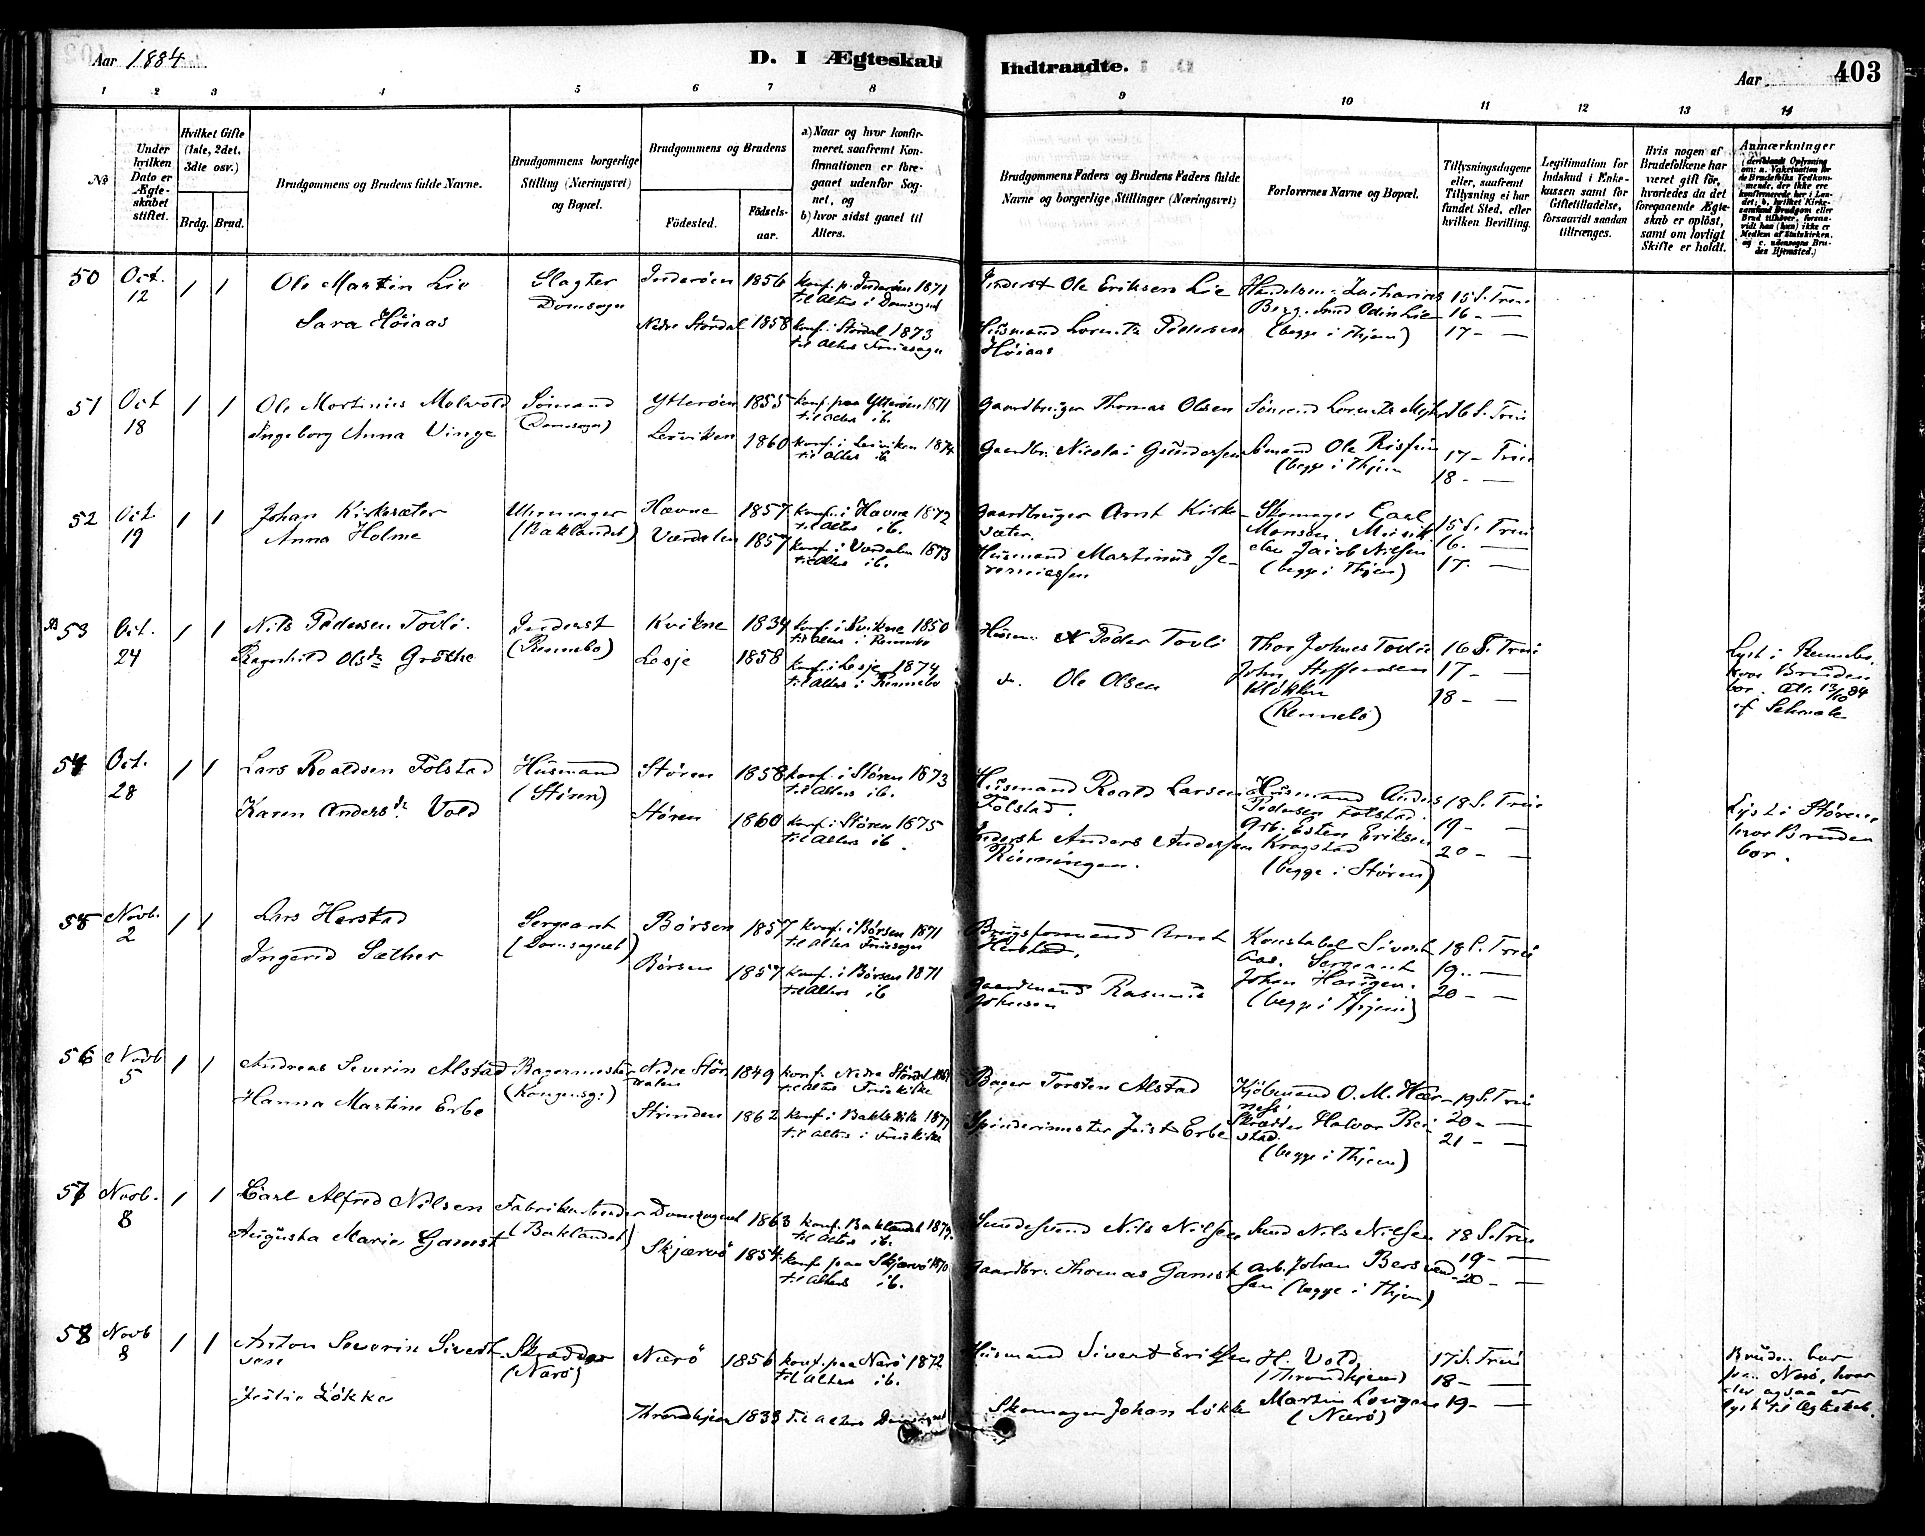 Aar 1884
D. I Ægteskab Indtraadte.
Aar 403
1 2 3 4 5 6 7 8 9 10 11 12 13 14
No
Under hvilken Dato er Ægteskabet stiftet.
Hvilket Gifte (1ste, 2det, 3dte osv.)
Brdg. Brud.
Brudgommens og Brudens fulde Navne.
Brudgommens borgerlige Stilling (Næringsvei) og Bopæl.
Brudgommens og Brudens
Födested. Födsels-aar.
a) Naar og hvor konfirmeret, saafremt Konfirmationen er foregaaet udenfor Sognet, og
b) hvor sidst gaaet til Alters.
Brudgommens Faders og Brudens Faders fulde Navne og borgerlige Stillinger (Næringsvei)
Forlovernes Navne og Bopæl.
Tillysningsdagene eller, saafremt Tillysning ei har fundet Sted, efter hvilken Bevilling.
Legitimation for Indskud i Enkekassen samt for Giftetilladelse, forsaavidt saadan tiltrænges.
Hvis nogen af Brudefolkene har været gift för, hvorledes da det foregaaende Ægteskab er oplöst, samt om lovligt Skifte er holdt.
Anmærkninger
50 Oct. 12 1 1
Ole Martin Lie
Sara Höiaas
Slagter
Domsogn
Inderöen 1856 konf. p. Inderöen 1871
til Alters i Domsognet
Nedre Stördal 1858 konf. i Stördal 1873
til Alters Fruesogn
Inderst Ole Eriksen Lie
Husmand Lorents Pedersen
Höiaas
Handelsm. Zacharias
Berg. Smed Odin Lie
(begge i Thjem)
15 S. Trin
16 - —
17 - —
51 Oct 18 1 1
Ole Martinus Molvold
Ingeborg Anna Vinge
Sömand
(Domsogn)
Ytteröen 1855 konf. paa Ytteröen 1871
til Alters ib.
Lexviken 1860 konf. i Lexviken 1874
til Alters ib
Gaardbruger Thomas Olsen
Gaardbr. Nicolai Gundersen
Sömand Lorents
Sömand Ole
(begge i Thjem
16 S. Trin
17 - Trin
18 - —
52 Oct. 19 1 1
Johan Kirksæter
Anna Holme
Uhrmager
(Baklandet)
Hævne 1857 konf. i Hævne 1872
til Alters ib.
Værdalen 1857 konf. i Værdalen 1873
til Alters ib.
Gaardbruger Arnt Kirksæter
Husmand Martinus Jeremiassen
Skomager Carl
Monsen. Musikelev Jacob Nilsen
(begge i Thjem)
15 S. Trin
16. —
17. —
53 Oct. 24 1 1
Nils Pedersen Tovli.
Ragnhild Olsdr Gröthe
Inderst
(Rennebo)
Kvikne 1834 konf. i Kvikne 1850
til Alters i Rennebo
Lesje 1858 konf. i Lesje 1874
til Alters i Rennebo
Husm. Peder Tovli
do. Ole Olsen
Thor Johnes Tovli
John Steffensen
Klökken
(Rennebö)
16 S. Trin
17 - —
18 - —
Lyst i Rennebo,
hvor Bruden
bor. Att. 13/10 84
af
54 Oct. 28 1 1
Lars Roaldsen Folstad
Karen Andersdr. Vold
Husmand
(Stören)
Stören 1858 konf. i Stören 1873
til Alters ib.
Stören 1860 konf. i Stören 1875
til Alters ib.
Husmand Roald Larsen
Folstad.
Inderst Anders Andersen
Rinningen.
Husmand Anders
Pedersen Folstad.
Arb. Esten Eriksen
Kragstad
(begge i Stören)
18 S. Trin
19 - —
20 - —
Lyst i Stören
hvor Bruden
bor.
55 Novb. 2 1 1
Lars Herstad
Ingerid Sæther
Sergeant
(Domsognet)
Börsen 1857 konf. i Börsen 1871
til Alters Fruesogn
Börsen 1857 konf. i Börsen 1871
til Alters ib
Brugsformand Arnt
Herstad.
Gaardmand Rasmus
Johnsen
Konstabel Sivert
Aas. Sergeant
Johan Haugen.
(begge i Thjem)
18 S. Trin
19 - —
20 - —
56 Novb 5 1 1
Andreas Severin Alstad
Hanna Martine Erbe
Bagermester
(Kongensg.)
Nedre Stördalen 1849 konf. Nedre Stördal
til Alters Fruekirke
Strinden 1862 konf. i Bakl. Kirke 1877
til Alters i Fruekirke
Bager Torsten Alstad
Spinderimester Erbe
Kjöbmand O. M. Hærness.
Skrædder Halvor Reistad.
(begge i Thjem)
19 S. Trin
20 - —
21 - —
57 Novb. 8 1 1
Carl Alfred Nilsen
Augusta Marie Gamst
Fabrikarbeider
(Baklandet)
Domsognet 1863 konf. Baklandet 1879.
til Alters ib.
Skjærvö 1854 konf. paa Skjærvö 1870
til Alters ib.
Nils Nilsen
Gaardbr. Thomas Gamst
Smed Nils Nilsen
Arb. Johan Bersvendsen (begge i Thjem)
18 S. Trin
19 - —
20 - —
58 Novb 8 1 1
Anton Severin Sivertsen
Lökke
Skrædder
(Nærö)
Nærö 1856 konf. paa Nærö 1872
til Alters ib.
Throndhjem 1833 til Alters Domsognet
Husmand Sivert Eriksen
Skomager Johan Lökke
H. Vold
(Throndhjem)
Martin
(Nærö)
17 S. Trin
18 - —
19 - —
Bruden bor
paa Nærö, hvor
der ogsaa er
lyst til Ægteskab.